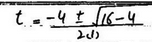 t = \frac{-4 \pm \sqrt{16-4}}{2(1)}